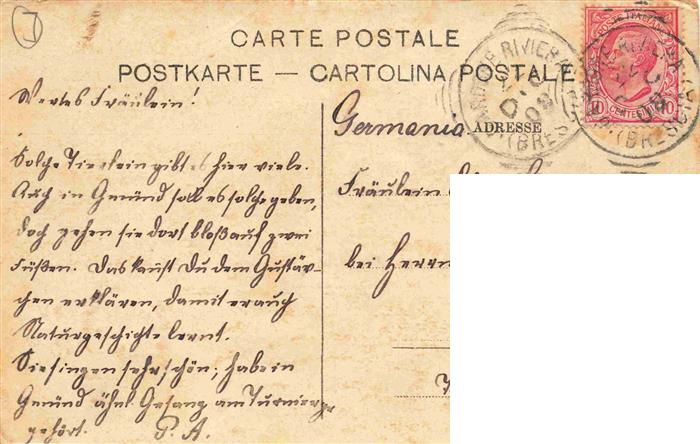 CARTE POSTALE
POSTKARTE — CARTOLINA POSTALE
POSTE ITALIANE
10 CENTESIMI 10
RIVIERA
(BRESCIA)
08
Germania
ADRESSE
Wertes Fräulein!
Solche Tierlein gibt es hier viele.
Auch in Gmünd soll es solche geben,
doch gehen sie dort bloß auf zwei
Füßen. Das kanst Du dem Gustäv-
chen erklären, damit er auch
Naturgeschichte lernt.
Sie singen sehr schön; habe in
Gmünd ähnl. Gesang am Turnier
gehört. P. A.
Fräulein
bei Herrn